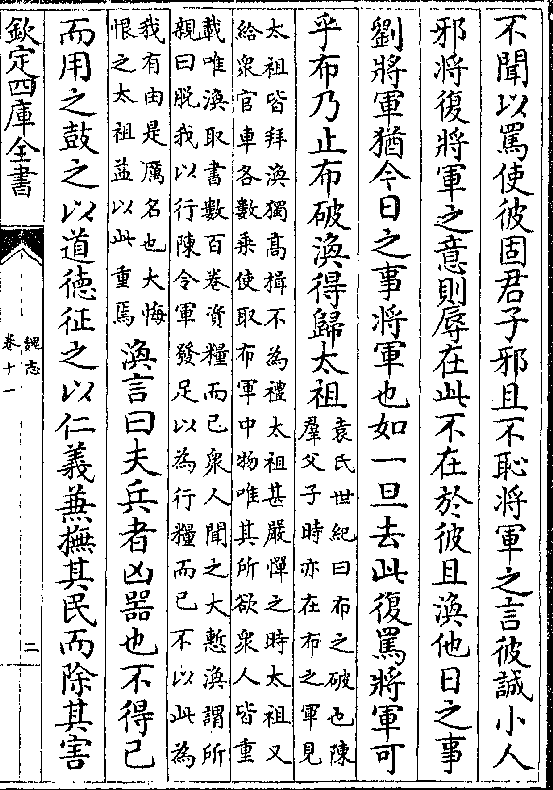 不聞以罵使彼固君子邪且不恥將軍之言彼誠小人
邪將復將軍之意則辱在此不在於彼且渙他日之事
劉將軍猶今日之事將軍也如一旦去此復罵將軍可
乎布乃止布破渙得歸太祖
袁氏世紀曰布之破也陳
羣父子時亦在布之軍見
太祖皆拜渙獨髙揖不為禮太祖甚嚴憚之時太祖又
給衆官車各數乗使取布軍中物唯其所欲衆人皆重
載唯渙取書數百卷資糧而已衆人聞之大慙渙謂所
親曰脱我以行陳令軍發足以為行糧而已不以此為
我有由是厲名也大悔
恨之太祖益以此重焉
渙言曰夫兵者凶器也不得已
而用之鼓之以道德征之以仁義兼撫其民而除其害
欽定四庫全書
魏志
卷十一
二